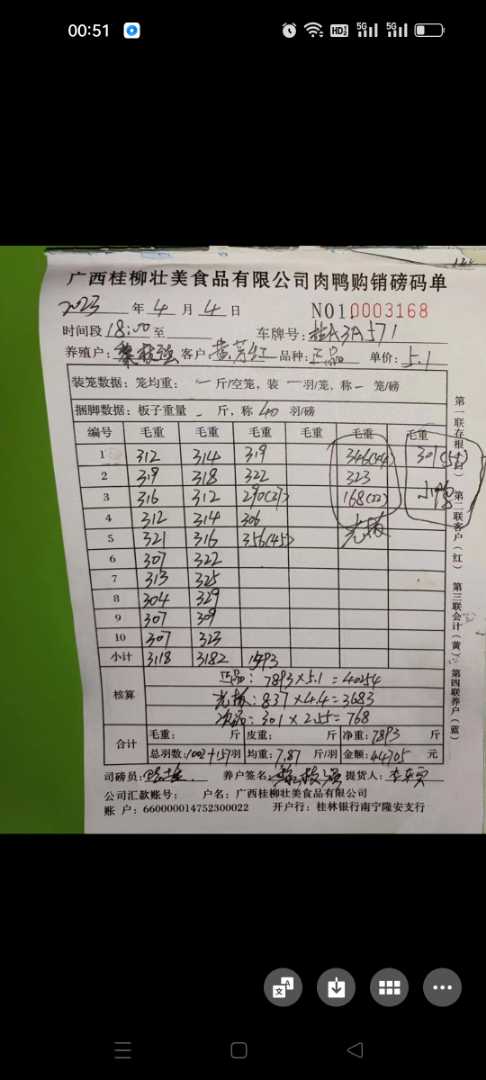 00:51
广西桂柳壮美食品有限公司肉鸭购销磅码单
2023 年 4 月 4 日 NO10003168
时间段 18:00 至 车牌号: 桂A3A571
养殖户: 客户 黄芳红 品种: 正品 单价: 5.1
装笼数据: 笼均重: 一 斤/空笼, 装 一 羽/笼, 称 一 笼/磅
捆脚数据: 板子重量 - 斤, 称 40 羽/磅
编号 毛重 毛重 毛重 毛重 毛重 毛重
1 312 314 319 346(44) 301
2 319 318 322 323
3 316 312 290(37) 168(22)
4 312 314 306
5 321 316 356(45)
6 307 322
7 313 325
8 304 329
9 307 309
10 307 323
小计 3118 3182 1593
核算
正品: 7893×5.1=40254
837×4.4=3683
次品: 301×2.55=768
合计 毛重: 斤 皮重: 斤 净重: 7893 斤
总羽数: 1002+157羽 均重: 7.87 斤/羽 金额: 44705 元
司磅员: 养户签名: 提货人:
公司汇款账号: 户名: 广西桂柳壮美食品有限公司
账 户: 660000014752300022 开户行: 桂林银行南宁隆安支行
第一联存根(白) 第二联客户(红) 第三联会计(黄) 第四联养户(蓝)